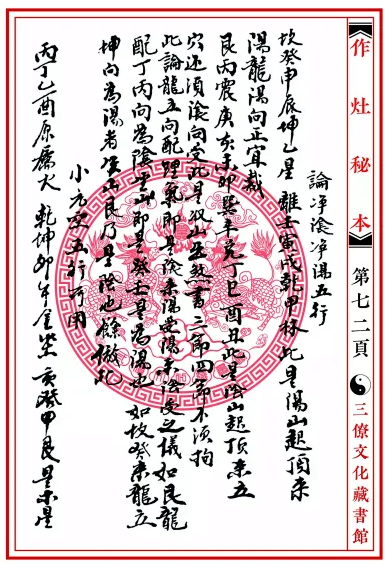 作灶秘本
第七二頁
三僚文化藏書館
論净陰净陽五行
坎癸申辰坤乙星離壬寅戌乾甲林此是陽山起頂来
陽龍陽向正宜裁
艮丙震庚亥未卯巽辛兔丁巳酉丑此是陰山起頂来立
穴还須陰向受此收山並煞書二節四節不須拘
此論龍立向配理氣即是陰来陽受陽来陰受之儀如艮龍
配丁丙向為陰坐山即是癸壬是為陽也如坎癸来龍立
坤向為陽者坐山艮乃是陰也餘倣此
小玄空五行可用
丙丁乙酉原屬火乾坤卯午金坐亥癸甲艮是木星